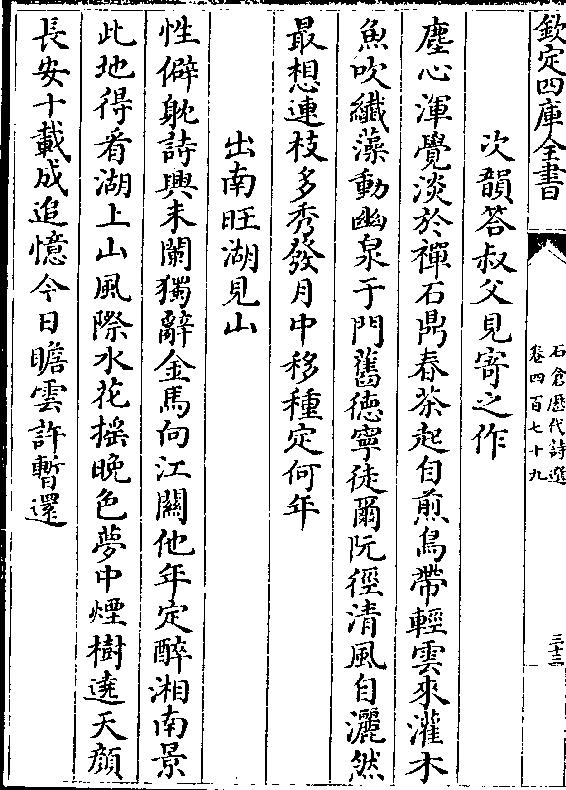 欽定四庫全書
石倉歷代詩選
卷四百七十九
三十三
次韻答叔父見寄之作
塵心渾覺淡於禪石鼎春茶起自煎鳥帶輕雲來灌木
魚吹纖藻動幽泉于門舊德寧徒爾阮徑清風自灑然
最想連枝多秀發月中移種定何年
出南旺湖見山
性僻躭詩興未闌獨辭金馬向江關他年定醉湘南景
此地得看湖上山風際水花搖晚色夢中煙樹遶天顔
長安十載成追憶今日瞻雲許暫還